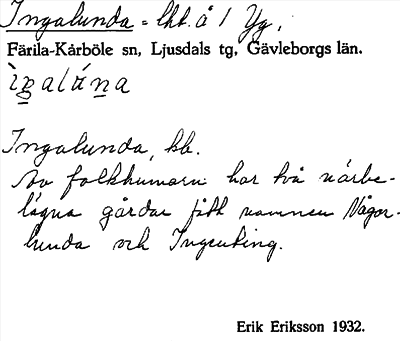 Ingalunda = lht. å 1 Yg.
Färila-Kårböle sn, Ljusdals tg, Gävleborgs län.
Ingalunda, bb.
Av folkhumorn har två närbe-
lägna gårdar fått namnen Någor-
lunda och Ingenting.
Erik Eriksson 1932.